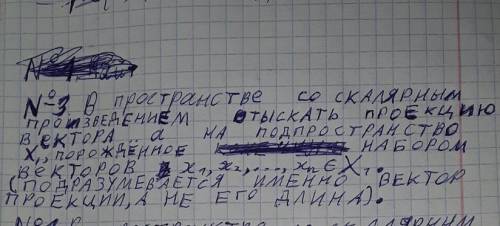 №3 В пространстве со скалярным
произведением отыскать проекцию
вектора a на подпространство
X₁, порождённое набором
векторов x₁, x₂, ..., xₙ ∈ X₁.
(подразумевается именно вектор
проекции, а не его длина).